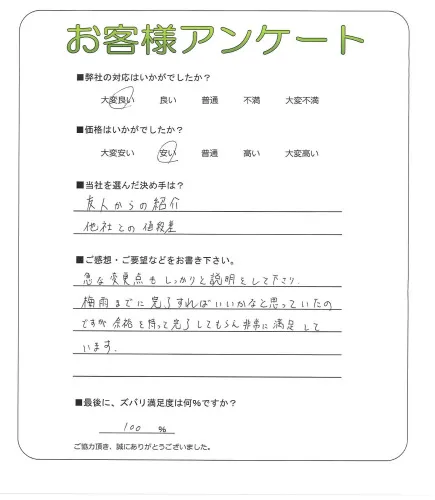 お客様アンケート
■弊社の対応はいかがでしたか？
大変良い 良い 普通 不満 大変不満
■価格はいかがでしたか？
大変安い 安い 普通 高い 大変高い
■当社を選んだ決め手は？
友人からの紹介
他社との値段差
■ご感想・ご要望などをお書き下さい。
急な変更点もしっかりと説明をして下さり.
梅雨までに完了すればいいかなと思っていたの
ですが 余裕を持って完了してもらえ非常に満足して
います.
■最後に、ズバリ満足度は何%ですか？
100 %
ご協力頂き、誠にありがとうございました。